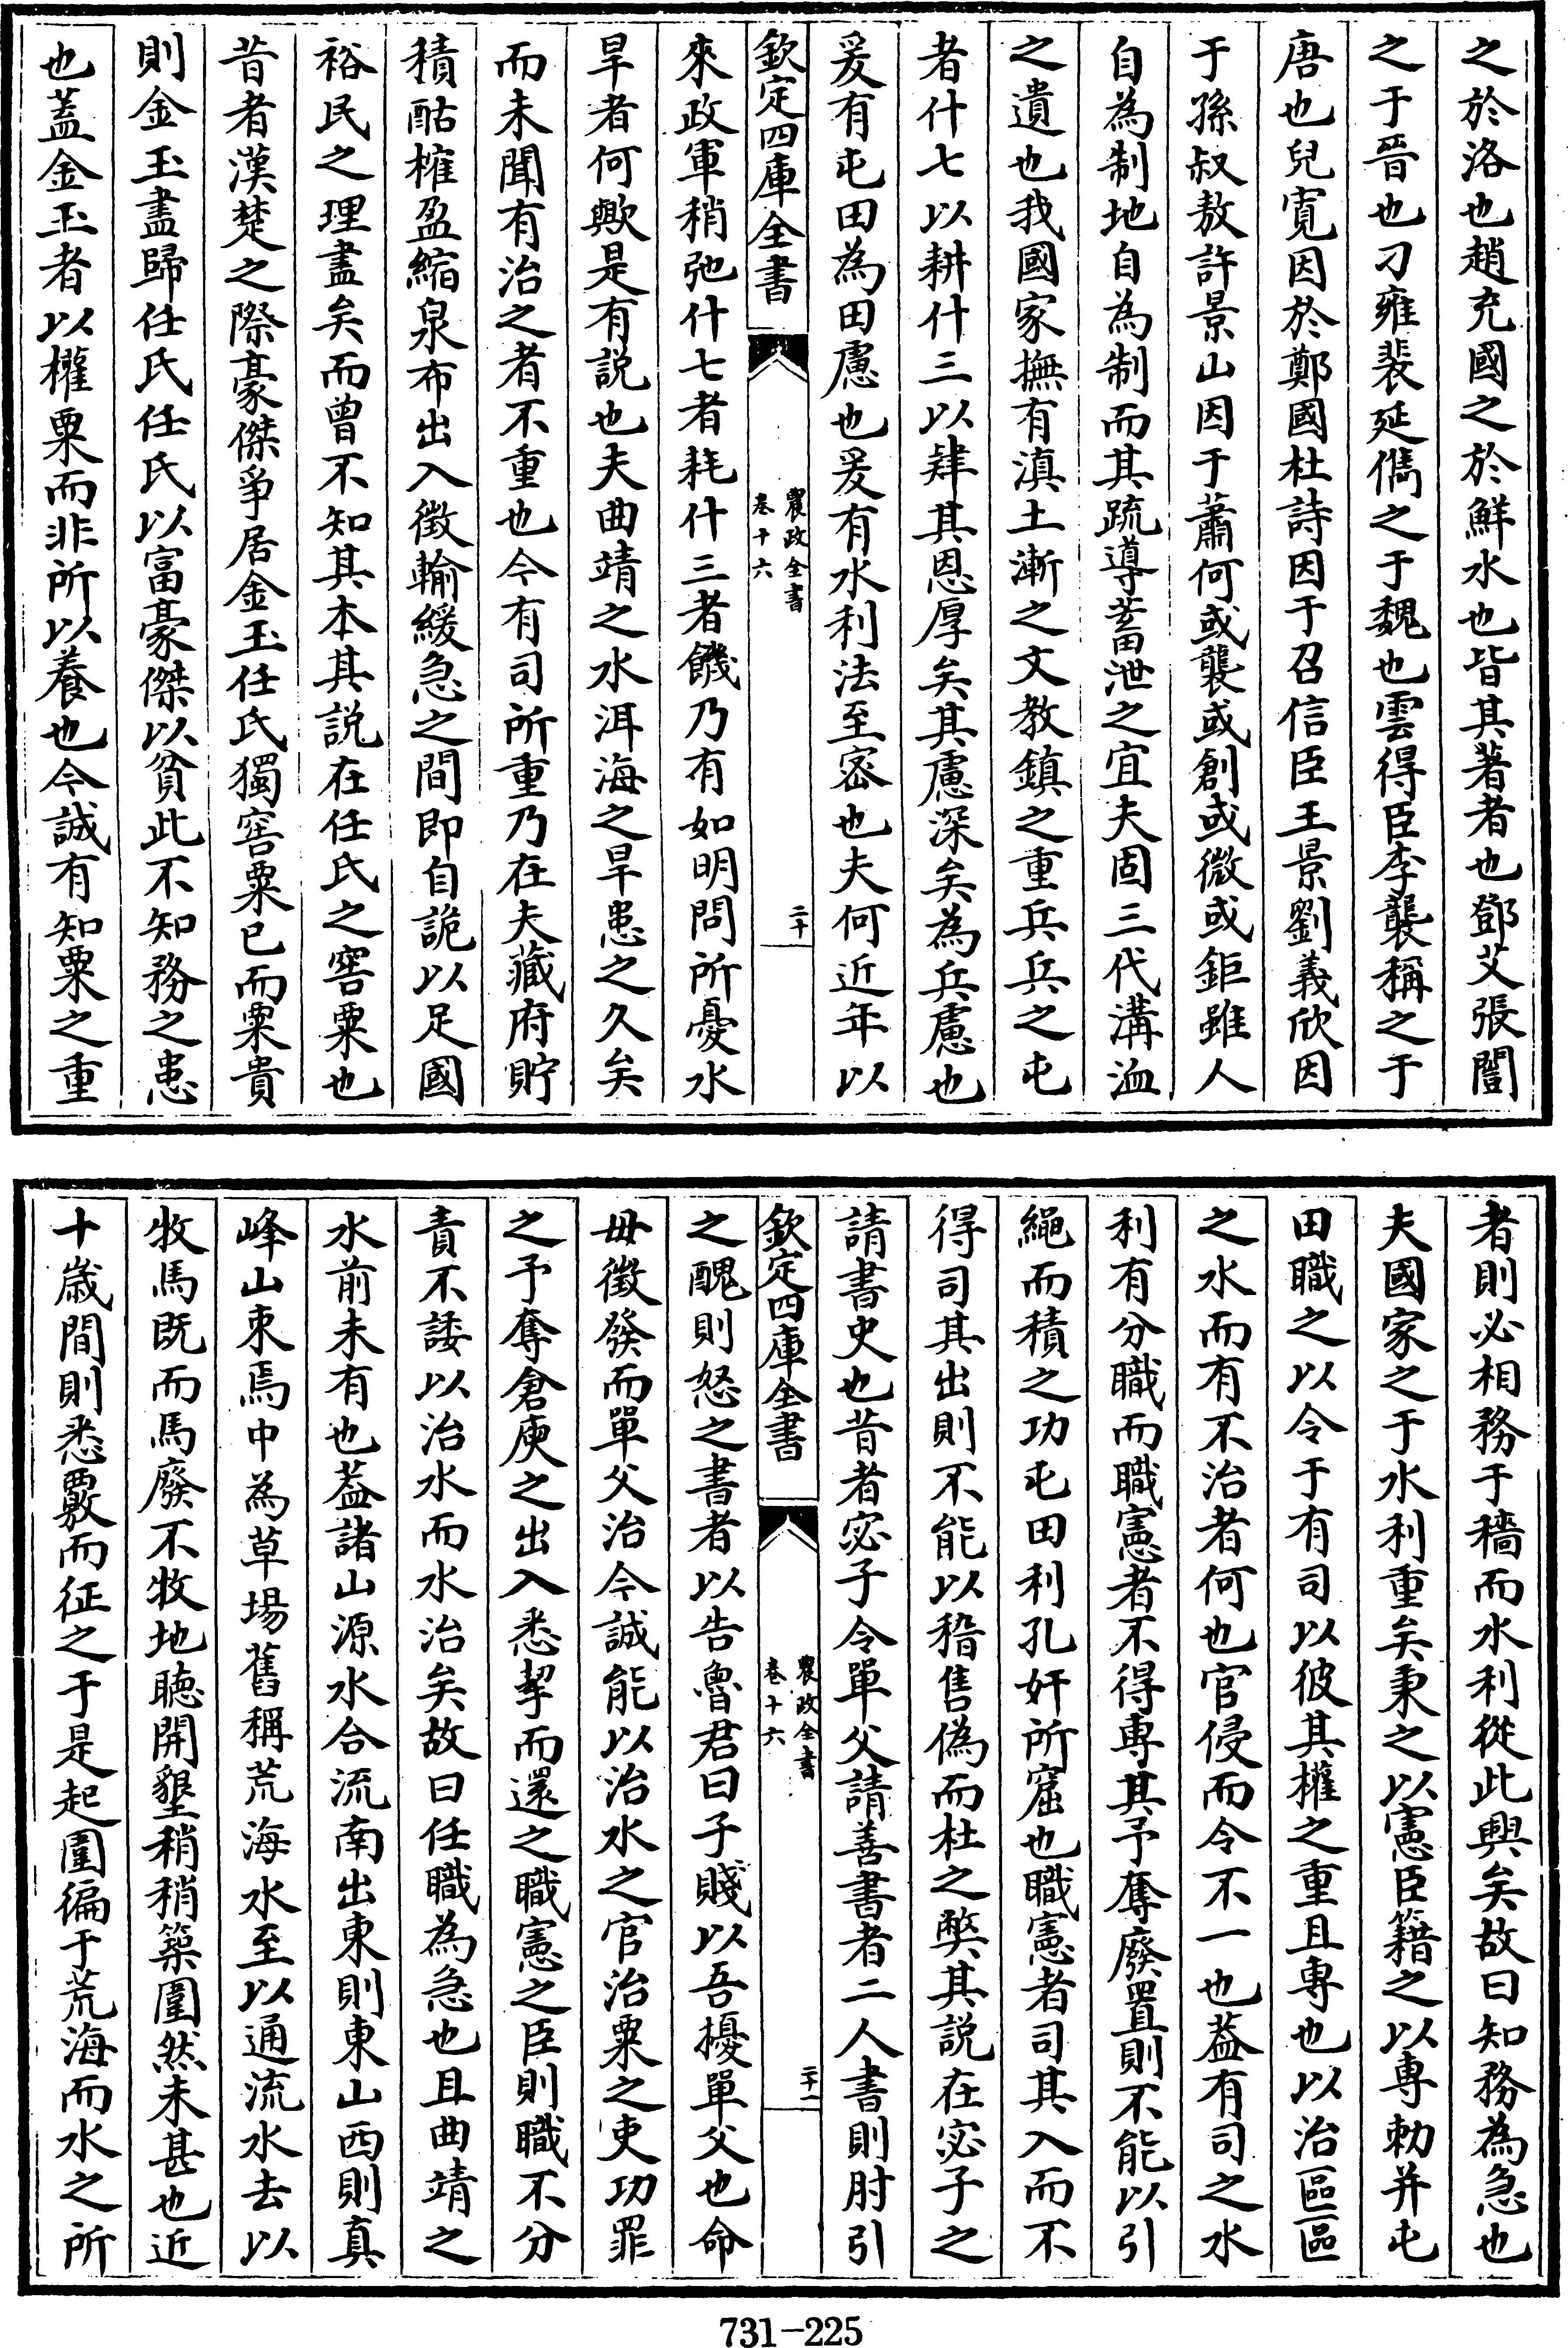 之於洛也趙充國之於鮮水也皆其著者也鄧艾張闓
之于晉也刁雍裴延儁之于魏也雲得臣李襲稱之于
唐也兒寬因於鄭國杜詩因于召信臣王景劉義欣因
于孫叔敖許景山因于蕭何或襲或創或微或鉅雖人
自為制地自為制而其疏導蓄泄之宜夫固三代溝洫
之遺也我國家撫有滇土漸之文教鎮之重兵兵之屯
者什七以耕什三以肄其恩厚矣其慮深矣為兵慮也
爰有屯田為田慮也爰有水利法至密也夫何近年以
欽定四庫全書
農政全書
卷十六
二十
來政軍稍弛什七者耗什三者饑乃有如明問所憂水
旱者何歟是有説也夫曲靖之水洱海之旱患之久矣
而未聞有治之者不重也今有司所重乃在夫藏府貯
積酤榷盈縮泉布出入徵輸緩急之間即自詭以足國
裕民之理盡矣而曾不知其本其説在任氏之窖粟也
昔者漢楚之際豪傑爭居金玉任氏獨窖粟已而粟貴
則金玉盡歸任氏任氏以富豪傑以貧此不知務之患
也蓋金玉者以權粟而非所以養也今誠有知粟之重
者則必相務于穡而水利從此興矣故曰知務為急也
夫國家之于水利重矣秉之以憲臣籍之以專勅并屯
田職之以令于有司以彼其權之重且專也以治區區
之水而有不治者何也官侵而令不一也蓋有司之水
利有分職而職憲者不得專其予奪廢置則不能以引
繩而積之功屯田利孔奸所窟也職憲者司其入而不
得司其出則不能以稽售偽而杜之弊其説在宓子之
請書史也昔者宓子令單父請善書者二人書則肘引
欽定四庫全書
農政全書
卷十六
二十一
之醜則怒之書者以告魯君曰子賤以吾擾單父也命
毋徵發而單父治今誠能以治水之官治粟之吏功罪
之予奪倉庾之出入悉挈而還之職憲之臣則職不分
責不諉以治水而水治矣故曰任職為急也且曲靖之
水前未有也蓋諸山源水合流南出東則東山西則真
峰山束焉中為草場舊稱荒海水至以通流水去以
牧馬既而馬廢不牧地聽開墾稍稍築圍然未甚也近
十歲間則悉覈而征之于是起圍徧于荒海而水之所
731-225